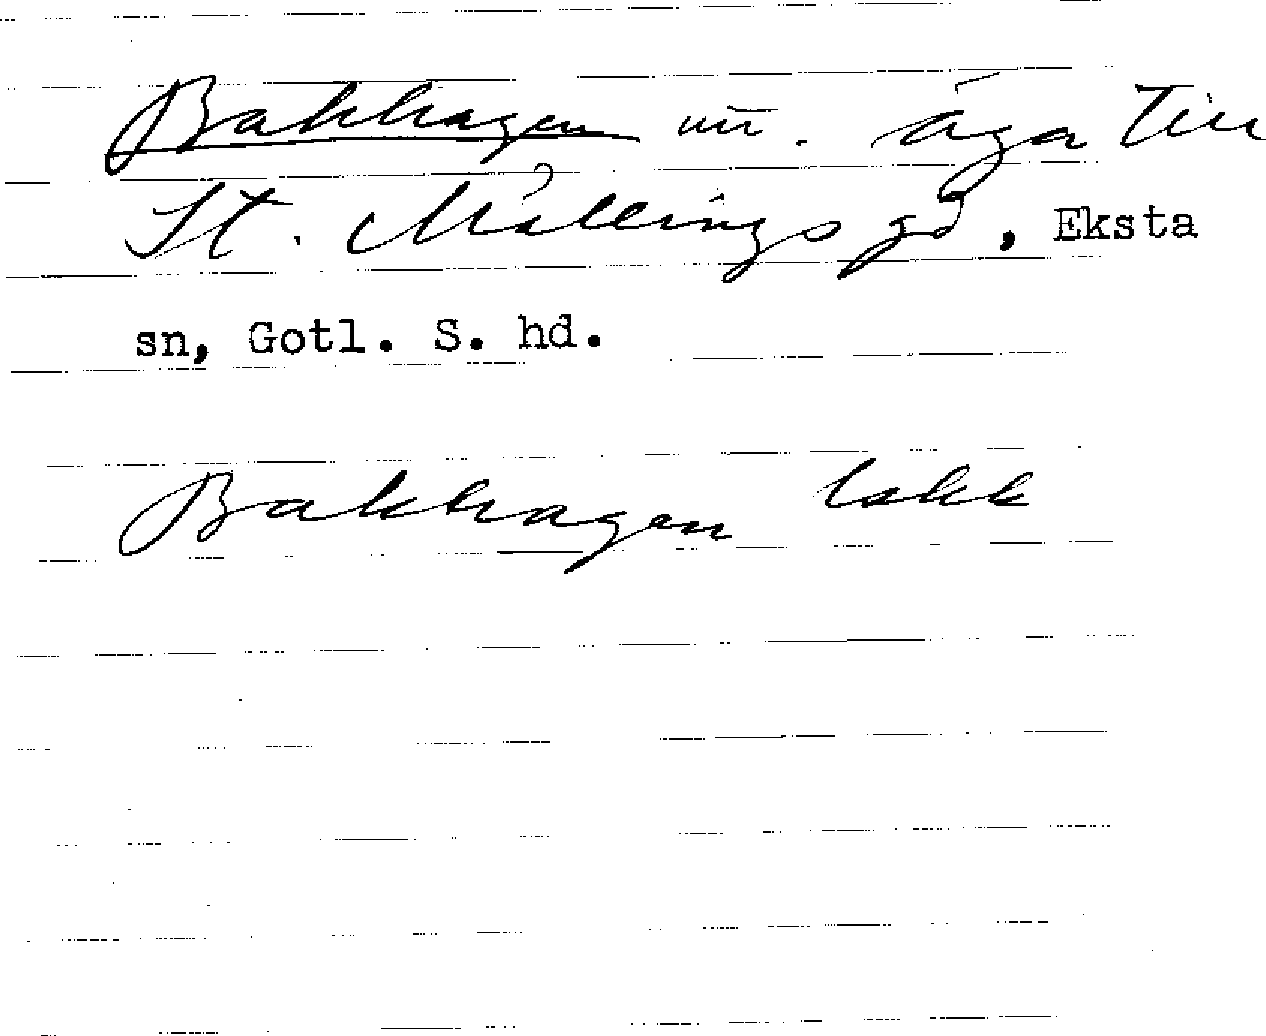 Bakhagen m. äga till
St. Mällings gd, Eksta
sn, Gotl. S. hd.
Bakhagen lskk